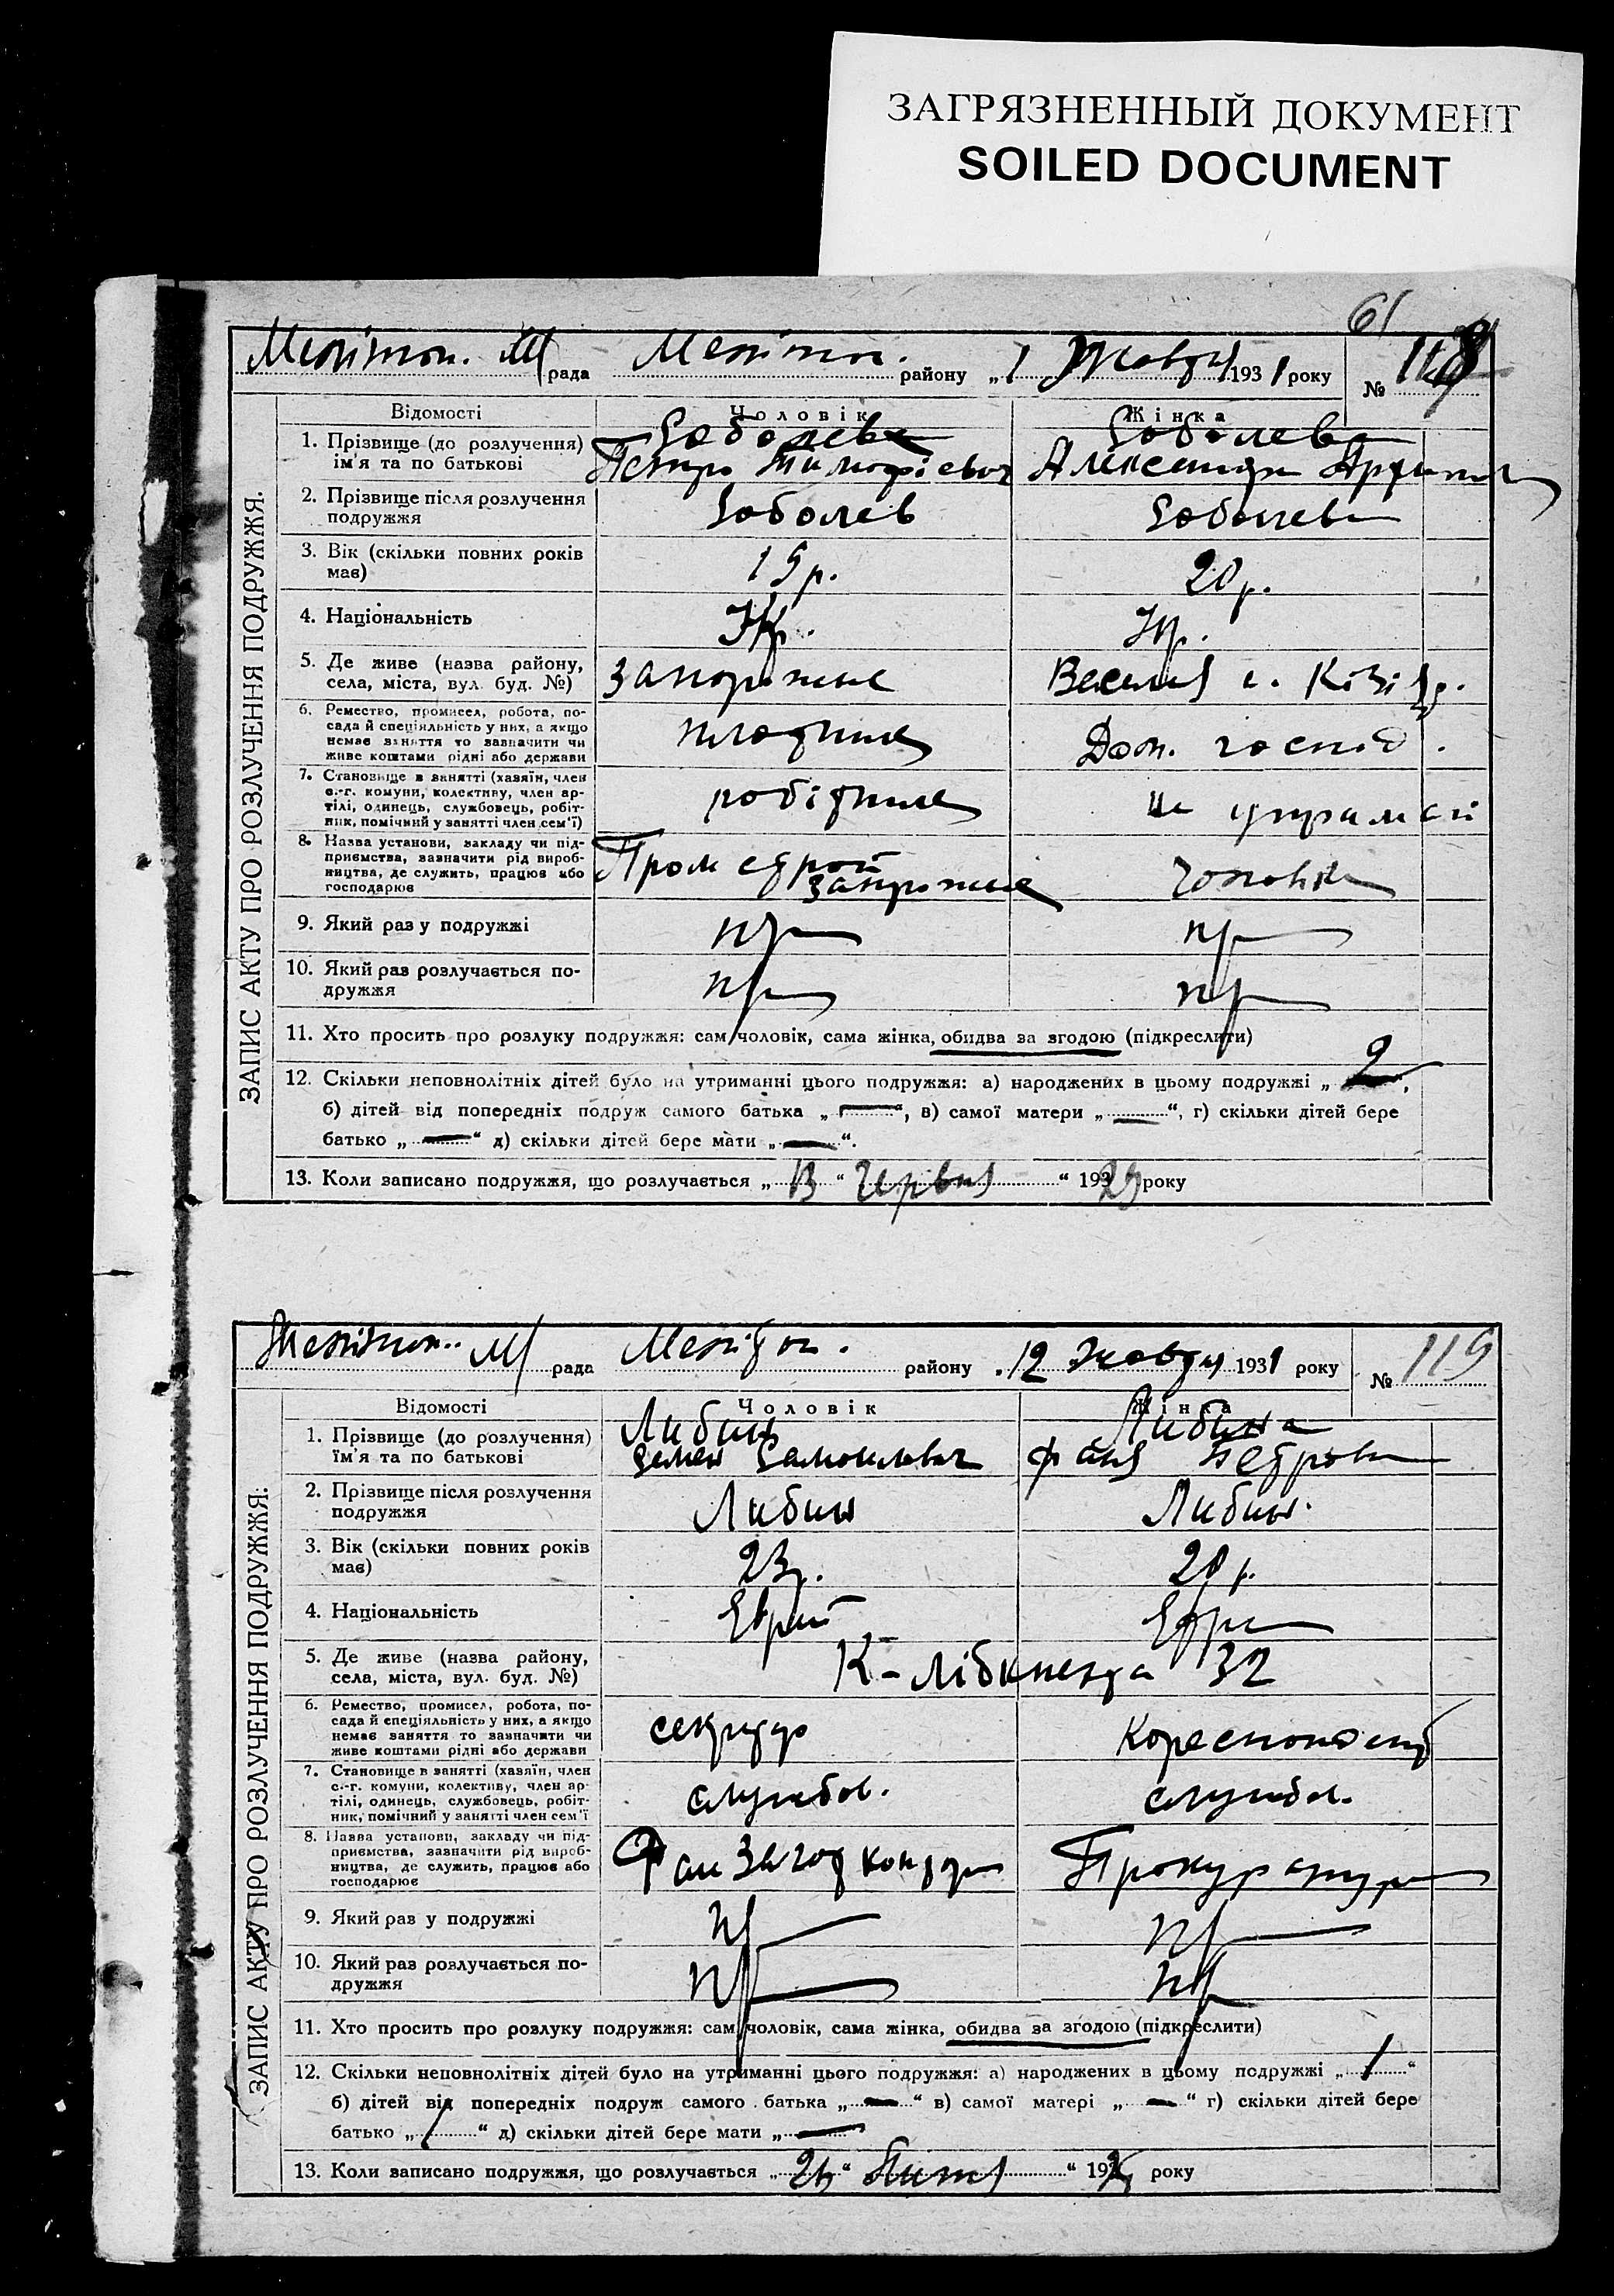 ЗАГРЯЗНЕННЫЙ ДОКУМЕНТ
SOILED DOCUMENT
61
Меліton. М/ рада Меліton. району „1 Жовтня 1931 року № 118
ЗАПИС АКТУ ПРО РОЗЛУЧЕННЯ ПОДРУЖЖЯ.
Відомості Чоловік Жінка
1. Прізвище (до розлучення) Соболев Соболева
ім'я та по батькові Петро Тимофієвич Александра
2. Прізвище після розлучення
подружжя Соболев Соболева
3. Вік (скільки повних років
має) 19 р. 20 р.
4. Національність Укр. Укр.
5. Де живе (назва району,
села, міста, вул. буд. №) Запоріжжє
6. Ремество, промисел, робота, по-
сада й спеціяльність у них, а якщо
немає заняття то зазначити чи
живе коштами рідні або держави Дом. господ.
7. Становище в занятті (хазяїн, член
с.-г. комуни, колективу, член ар-
тілі, одинець, службовець, робіт-
ник, помічний у занятті член сем'ї) робітник на утриман
8. Назва установи, закладу чи під-
приємства, зазначити рід вироб-
ництва, де служить, працює або
господарює Промстрой Запоріжжє чоловіка
9. Який раз у подружжі пр пр
10. Який раз розлучається по-
дружжя пр пр
11. Хто просить про розлуку подружжя: сам чоловік, сама жінка, обидва за згодою (підкреслити)
12. Скільки неповнолітніх дітей було на утриманні цього подружжя: а) народжених в цьому подружжі „ 2 “,
б) дітей від попередніх подруж самого батька „ — “, в) самої матери „ — “, г) скільки дітей бере
батько „ — “ д) скільки дітей бере мати „ — “.
13. Коли записано подружжя, що розлучається „ 13 “ Червня “ 1929 року
Меліton. М/ рада Меліton. району „12 Жовтня 1931 року № 119
ЗАПИС АКТУ ПРО РОЗЛУЧЕННЯ ПОДРУЖЖЯ.
Відомості Чоловік Жінка
1. Прізвище (до розлучення) Либин Либина
ім'я та по батькові Семен Самоилович Фаня Петровна
2. Прізвище після розлучення
подружжя Либин Либин.
3. Вік (скільки повних років
має) 23 р. 20 р.
4. Національність Еврей Евр
5. Де живе (назва району,
села, міста, вул. буд. №) К-Лібкнехта 32
6. Ремество, промисел, робота, по-
сада й спеціяльність у них, а якщо
немає заняття то зазначити чи
живе коштами рідні або держави секретар кореспондент
7. Становище в занятті (хазяїн, член
с.-г. комуни, колективу, член ар-
тілі, одинець, службовець, робіт-
ник, помічний у занятті член сем'ї службов. службов.
8. Назва установи, закладу чи під-
приємства, зазначити рід вироб-
ництва, де служить, працює або
господарює Прокуратура
9. Який раз у подружжі пр пр
10. Який раз розлучається по-
дружжя пр пр
11. Хто просить про розлуку подружжя: сам чоловік, сама жінка, обидва за згодою (підкреслити)
12. Скільки неповнолітніх дітей було на утриманні цього подружжя: а) народжених в цьому подружжі „ 1 “
б) дітей від попередніх подруж самого батька „ — “ в) самої матері „ — “ г) скільки дітей бере
батько „ / “ д) скільки дітей бере мати „ — “
13. Коли записано подружжя, що розлучається року